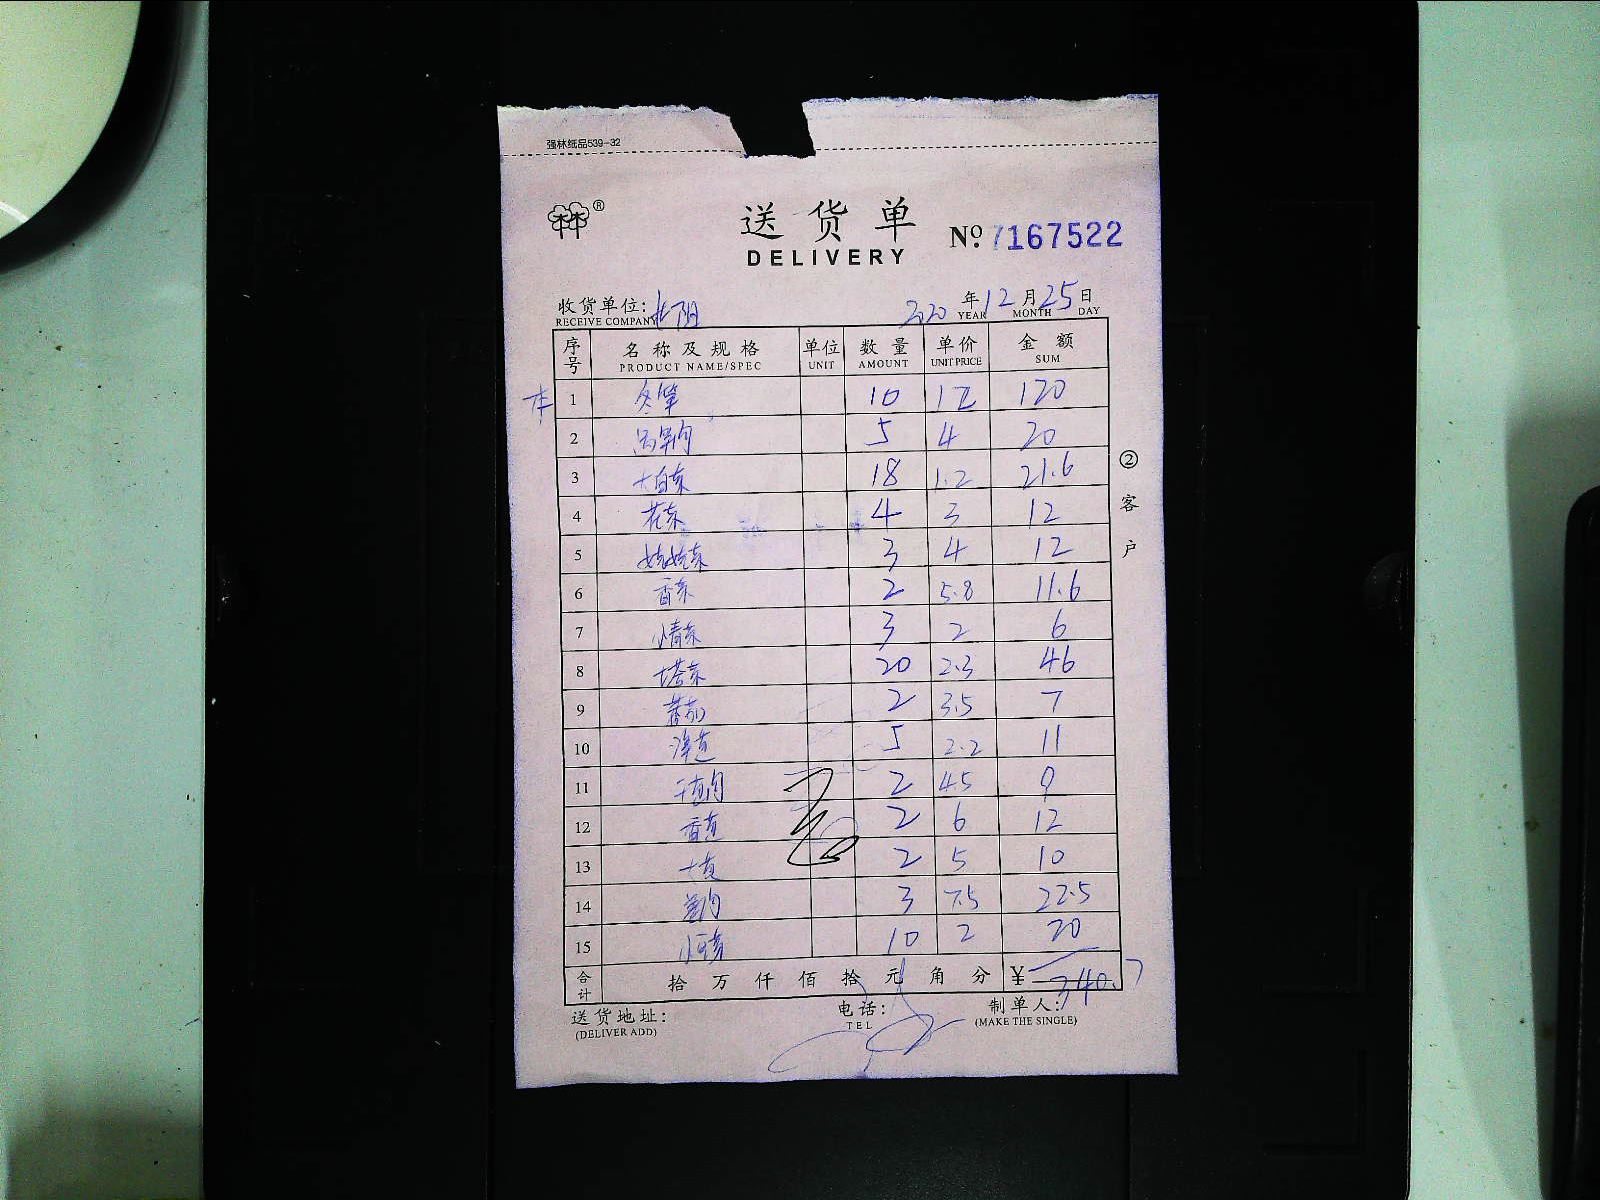 强林纸品539-32
®
送货单
DELIVERY
No. 7167522
收货单位: 2020年12月25日
RECEIVE COMPANY YEAR MONTH DAY
序号 名称及规格 单位 数量 单价 金额
PRODUCT NAME/SPEC UNIT AMOUNT UNIT PRICE SUM
1 冬笋 10 12 120
2 5 4 20
3 大白菜 18 1.2 21.6
4 花菜 4 3 12
5 娃娃菜 3 4 12
6 香菜 2 5.8 11.6
7 小青菜 3 2 6
8 塔菜 20 2.3 46
9 蕃茄 2 3.5 7
10 洋芋 5 2.2 11
11 2 4.5 9
12 2 6 12
13 2 5 10
14 3 7.5 22.5
15 10 2 20
合计 拾万仟佰拾元角分 ¥ 340.7
送货地址: 电话: 制单人:
(DELIVER ADD) TEL (MAKE THE SINGLE)
②客户